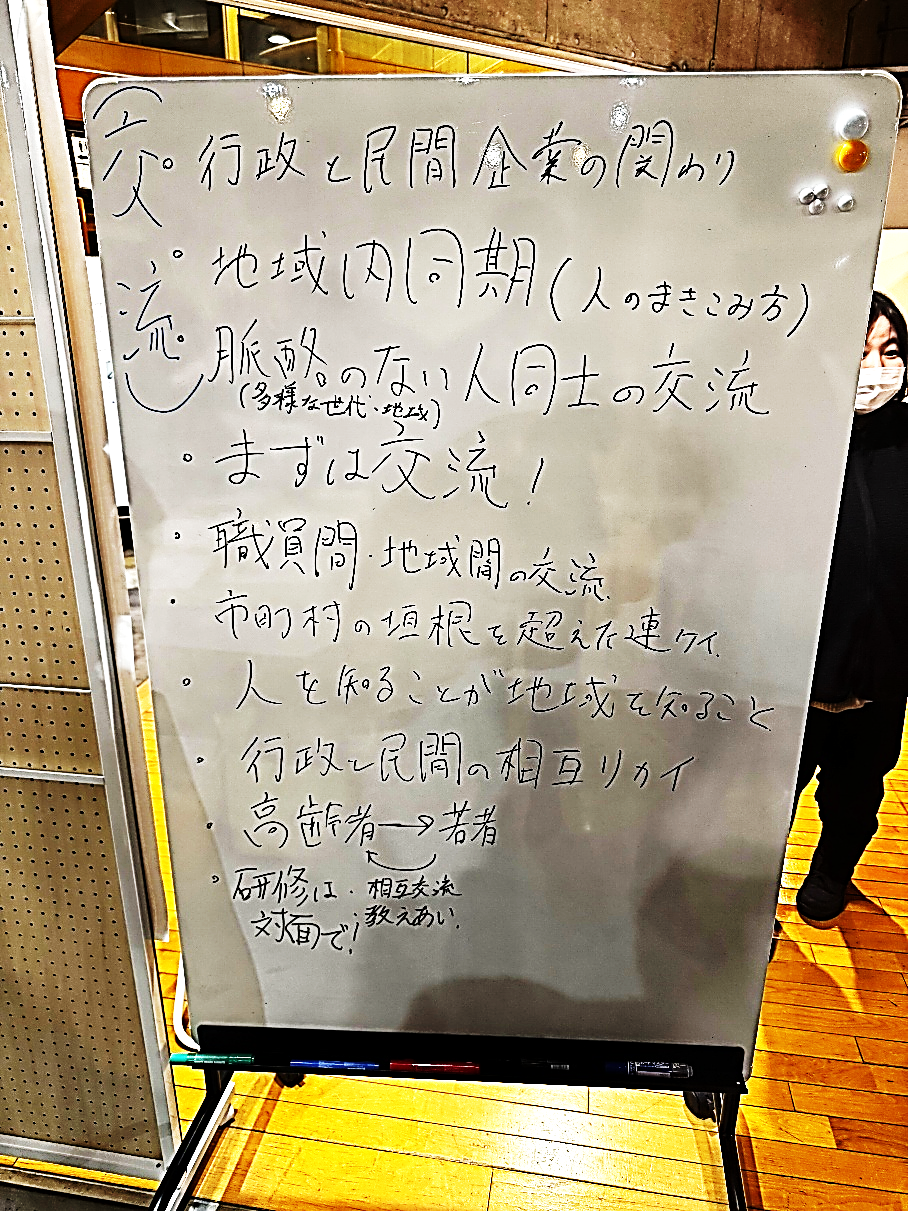 (交流)
。行政と民間企業の関わり
。地域内同期(人のまきこみ方)
。脈酪のない人同士の交流
(多様な世代・地域)
。まずは交流!
・職員間・地域間の交流
・市町村の垣根を超えた連ケイ
。人を知ることが地域を知ること
。行政と民間の相互リカイ
。高齢者→若者
。研修は対面で!
・相互交流
教えあい